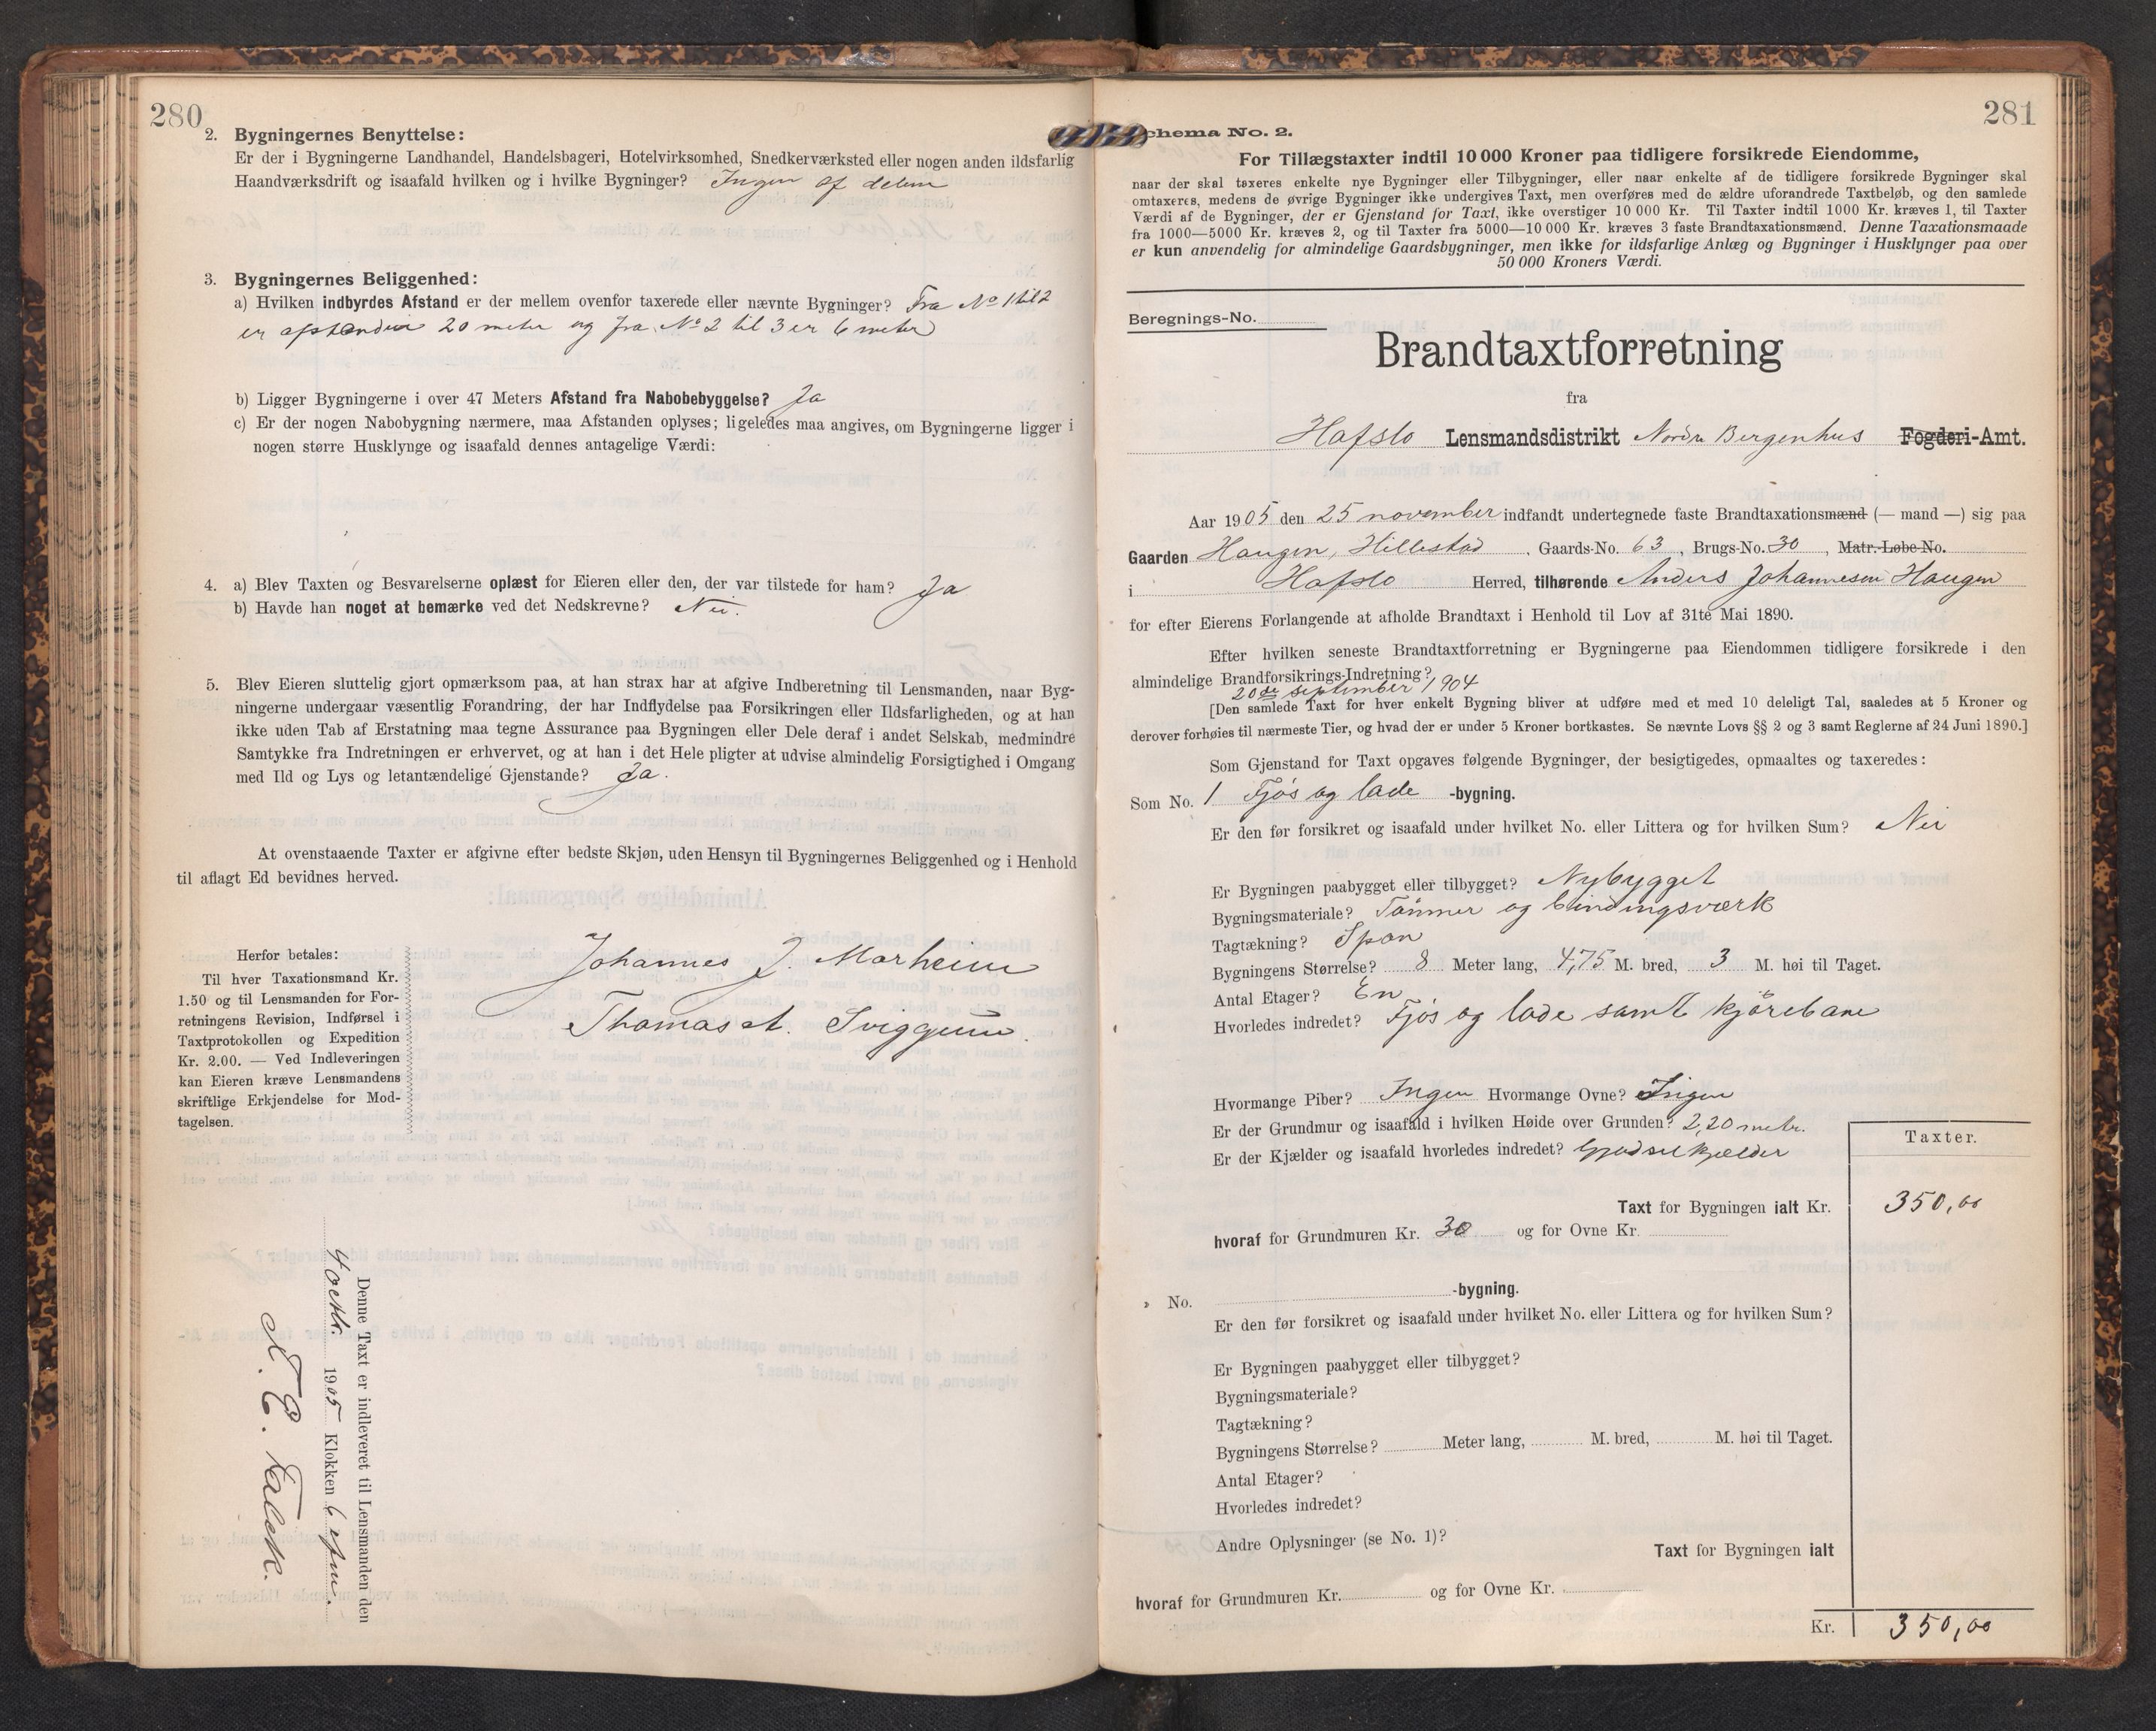 280
2. Bygningernes Benyttelse:
Er der i Bygningerne Landhandel, Handelsbageri, Hotelvirksomhed, Snedkerværksted eller nogen anden ildsfarlig
Haandværksdrift og isaafald hvilken og i hvilke Bygninger? Ingen af delene
3. Bygningernes Beliggenhed:
a) Hvilken indbyrdes Afstand er der mellem ovenfor taxerede eller nævnte Bygninger? Fra No 1 til 2
er afstanden 20 meter og fra No 2 til 3 er 6 meter
b) Ligger Bygningerne i over 47 Meters Afstand fra Nabobebyggelse? Ja
c) Er der nogen Nabobygning nærmere, maa Afstanden oplyses; ligeledes maa angives, om Bygningerne ligger i
nogen større Husklynge og isaafald dennes antagelige Værdi:
4. a) Blev Taxten og Besvarelserne oplæst for Eieren eller den, der var tilstede for ham? Ja
b) Havde han noget at bemærke ved det Nedskrevne? Nei.
5. Blev Eieren sluttelig gjort opmærksom paa, at han strax har at afgive Indberetning til Lensmanden, naar Byg-
ningerne undergaar væsentlig Forandring, der har Indflydelse paa Forsikringen eller Ildsfarligheden, og at han
ikke uden Tab af Erstatning maa tegne Assurance paa Bygningen eller Dele deraf i andet Selskab, medmindre
Samtykke fra Indretningen er erhvervet, og at han i det Hele pligter at udvise almindelig Forsigtighed i Omgang
med Ild og Lys og letantændelige Gjenstande? Ja.
At ovenstaaende Taxter er afgivne efter bedste Skjøn, uden Hensyn til Bygningernes Beliggenhed og i Henhold
til aflagt Ed bevidnes herved.
Herfor betales:
Til hver Taxationsmand Kr.
1.50 og til Lensmanden for For-
retningens Revision, Indførsel i
Taxtprotokollen og Expedition
Kr. 2.00. — Ved Indleveringen
kan Eieren kræve Lensmandens
skriftlige Erkjendelse for Mod-
tagelsen.
Johannes J. Marheim
Thomas A. Sviggum.
Denne Taxt er indleveret til Lensmanden den
4 octbr. 1905 Klokken 6 efm.
281
chema No. 2.
For Tillægstaxter indtil 10 000 Kroner paa tidligere forsikrede Eiendomme,
naar der skal taxeres enkelte nye Bygninger eller Tilbygninger, eller naar enkelte af de tidligere forsikrede Bygninger skal
omtaxeres, medens de øvrige Bygninger ikke undergives Taxt, men overføres med de ældre uforandrede Taxtbeløb, og den samlede
Værdi af de Bygninger, der er Gjenstand for Taxt, ikke overstiger 10 000 Kr. Til Taxter indtil 1000 Kr. kræves 1, til Taxter
fra 1000—5000 Kr. kræves 2, og til Taxter fra 5000—10 000 Kr. kræves 3 faste Brandtaxationsmænd. Denne Taxationsmaade
er kun anvendelig for almindelige Gaardsbygninger, men ikke for ildsfarlige Anlæg og Bygninger i Husklynger paa over
50 000 Kroners Værdi.
Beregnings-No.
Brandtaxtforretning
fra
Hafslo Lensmandsdistrikt Nordre Bergenhus Fogderi-Amt.
Aar 1905 den 25 november indfandt undertegnede faste Brandtaxationsmænd (— mand —) sig paa
Gaarden Haugen, Hillestad, Gaards-No. 63, Brugs-No. 30, Matr.-Løbe-No.
i Hafslo Herred, tilhørende Anders Johannesen Haugen
for efter Eierens Forlangende at afholde Brandtaxt i Henhold til Lov af 31te Mai 1890.
Efter hvilken seneste Brandtaxtforretning er Bygningerne paa Eiendommen tidligere forsikrede i den
almindelige Brandforsikrings-Indretning?
20de september 1904
[Den samlede Taxt for hver enkelt Bygning bliver at udføre med et med 10 deleligt Tal, saaledes at 5 Kroner og
derover forhøies til nærmeste Tier, og hvad der er under 5 Kroner bortkastes. Se nævnte Lovs §§ 2 og 3 samt Reglerne af 24 Juni 1890.]
Som Gjenstand for Taxt opgaves følgende Bygninger, der besigtigedes, opmaaltes og taxeredes:
Som No. 1 Fjøs og lade -bygning.
Er den før forsikret og isaafald under hvilket No. eller Littera og for hvilken Sum? Nei
Er Bygningen paabygget eller tilbygget? Nybygget
Bygningsmateriale? Tømmer og bindingsværk
Tagtækning? Spon
Bygningens Størrelse? 8 Meter lang, 4,75 M. bred, 3 M. høi til Taget.
Antal Etager? En
Hvorledes indredet? Fjøs og lade samt kjørebane
Hvormange Piber? Ingen Hvormange Ovne? Ingen
Er der Grundmur og isaafald i hvilken Høide over Grunden? 2,20 metr.
Er der Kjælder og isaafald hvorledes indredet? Gjødselkjælder
Taxter.
Taxt for Bygningen ialt Kr. 350,00
hvoraf for Grundmuren Kr. 30 og for Ovne Kr.
» No. -bygning.
Er den før forsikret og isaafald under hvilket No. eller Littera og for hvilken Sum?
Er Bygningen paabygget eller tilbygget?
Bygningsmateriale?
Tagtækning?
Bygningens Størrelse? Meter lang, M. bred, M. høi til Taget.
Antal Etager?
Hvorledes indredet?
Andre Oplysninger (se No. 1)?
Taxt for Bygningen ialt
hvoraf for Grundmuren Kr. og for Ovne Kr.
Kr. 350,00